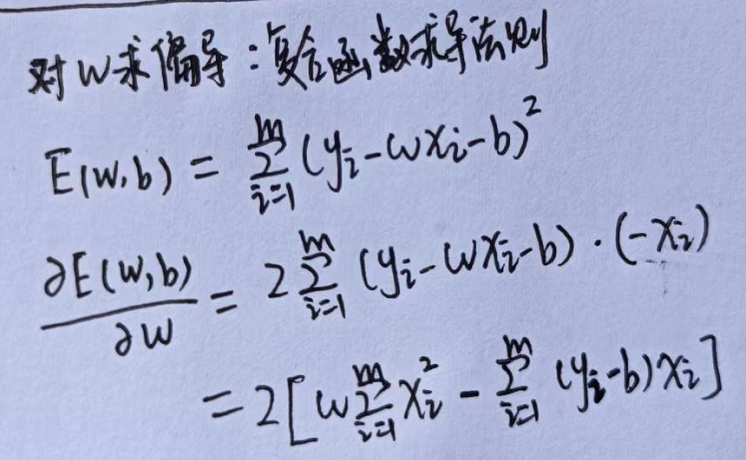 对w求偏导:复合函数求导法则
E(w,b) = ∑_{i=1}^{m} (y_i - wx_i - b)^2
∂E(w,b)/∂w = 2∑_{i=1}^{m} (y_i - wx_i - b)·(-x_i)
= 2[w∑_{i=1}^{m} x_i^2 - ∑_{i=1}^{m} (y_i - b)x_i]